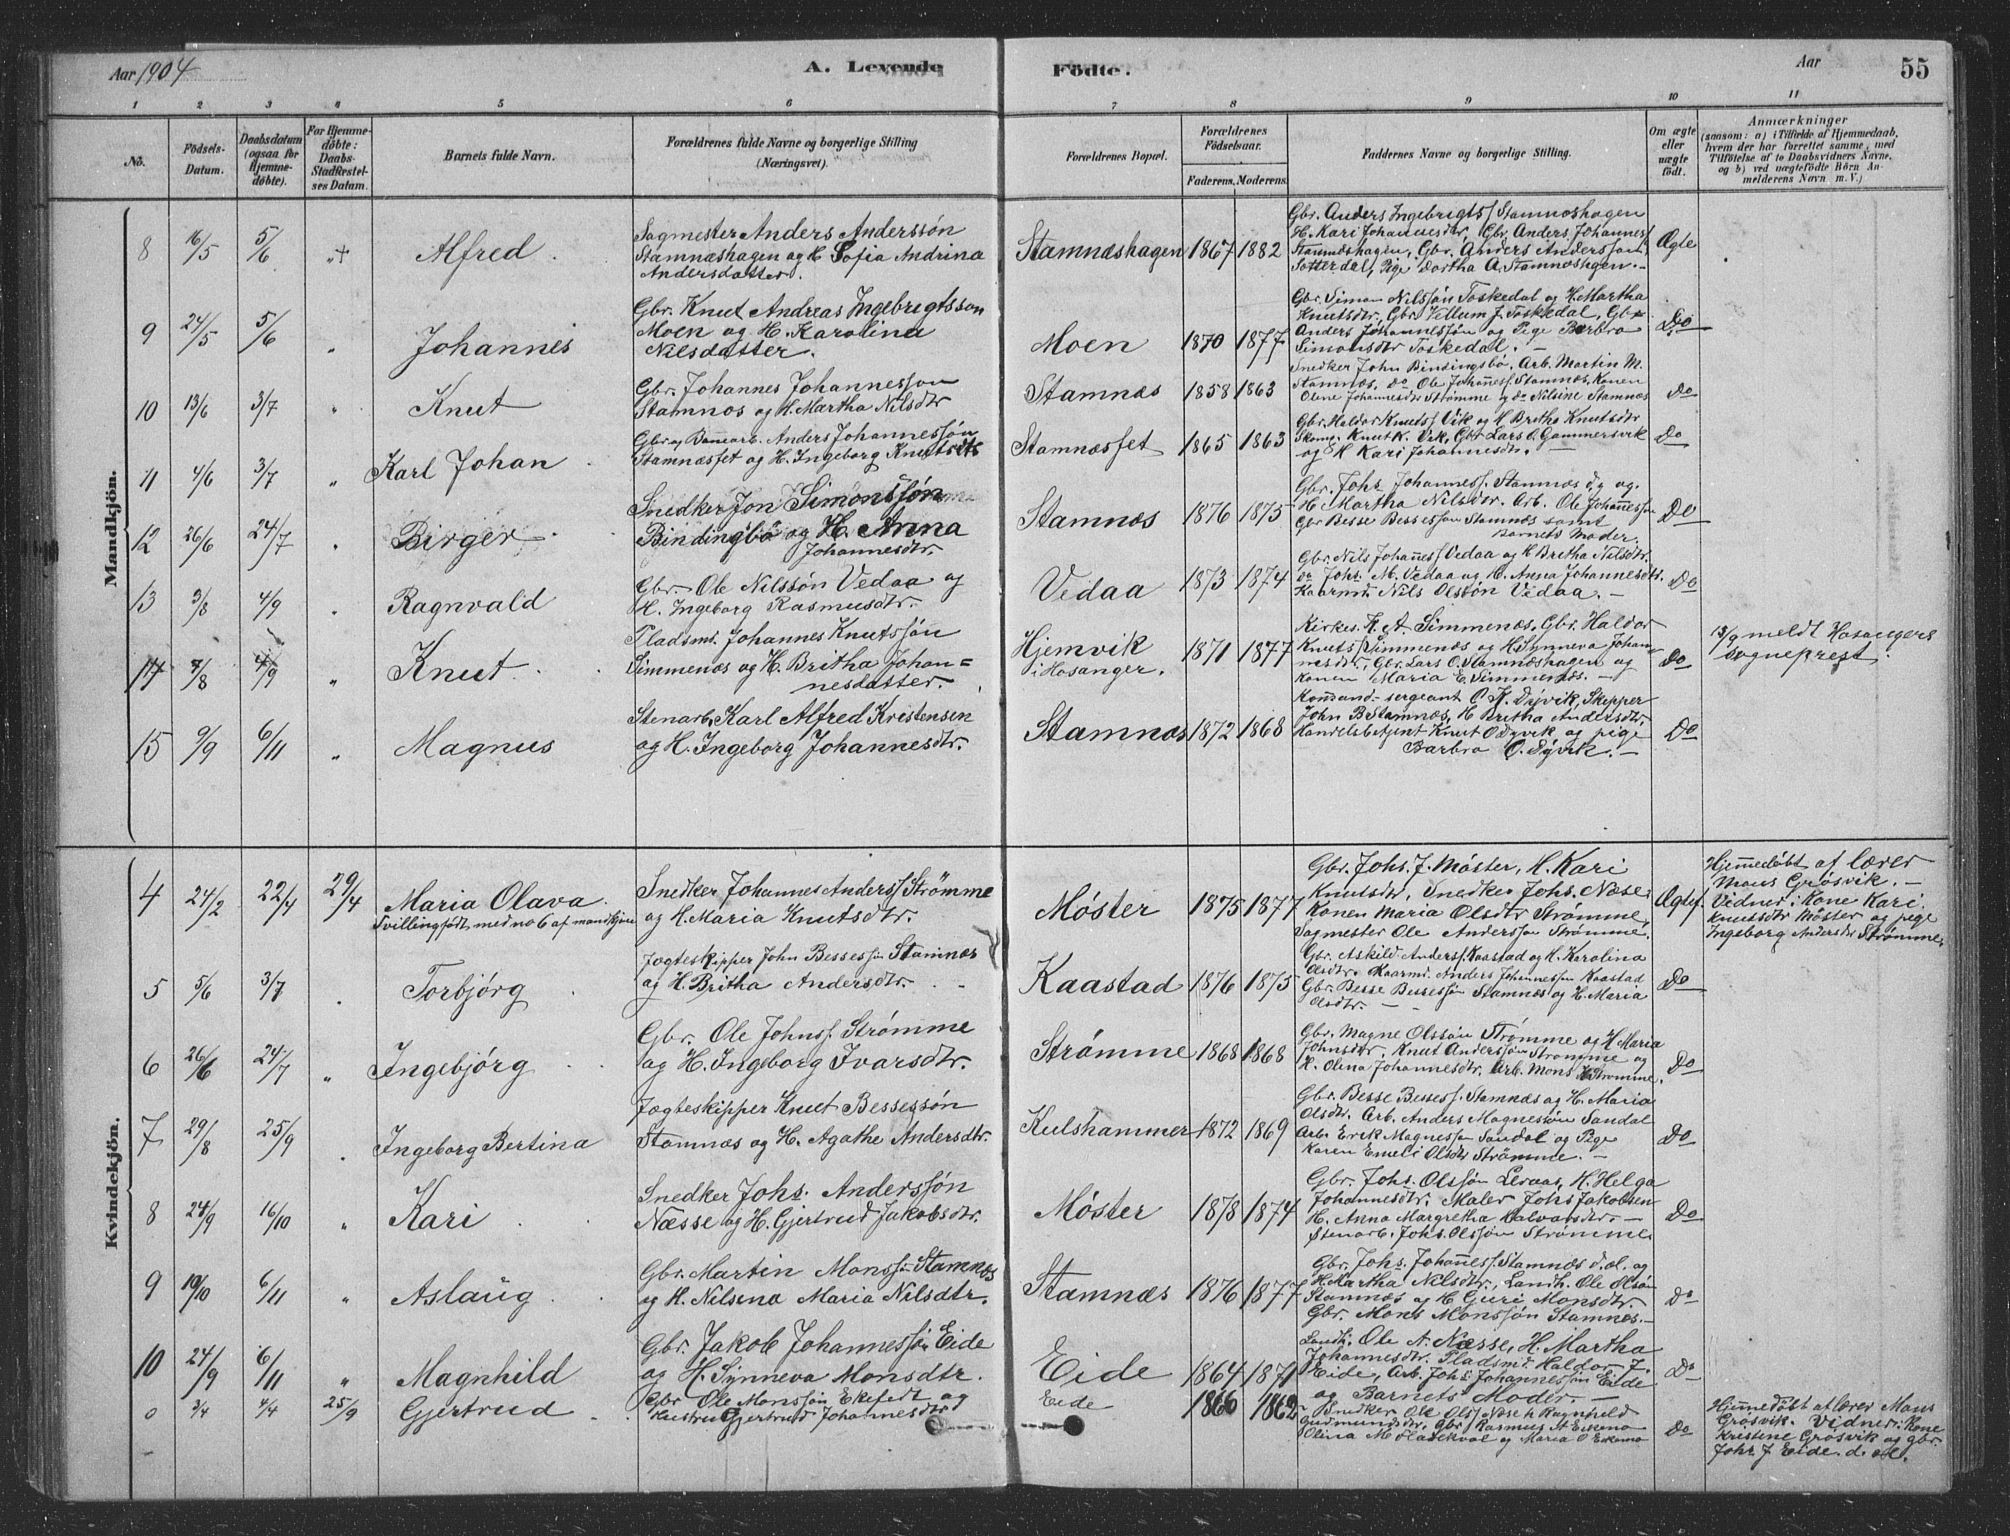 Aar 1904
A. Levende
Födte.
Aar
55
1 2 3 4 5 6 7 8 9 10 11
No.
Födsels-
Datum.
Daabsdatum
(ogsaa for
Hjemme-
døbte).
For Hjemme-
døbte:
Daabs-
Stadfæstel-
ses Datum.
Barnets fulde Navn.
Forældrenes fulde Navne og borgerlige Stilling
(Næringsvei).
Forældrenes Bopæl.
Forældrenes
Födselsaar.
Faderens. Moderens.
Faddernes Navne og borgerlige Stilling.
Om ægte
eller
uægte
födt.
Anmærkninger
(saasom: a) i Tilfælde af Hjemmedaab,
hvem der har forrettet samme, med
Tilföielse af to Daabsvidners Navne,
og b) ved uægtefödte Börn An-
melderens Navn m. V.)
Mandkjön.
8 16/5 5/6 Alfred
Sagmester Anders Anderssön
Stamnæshagen og H. Sofia Andrina
Andersdatter.
Stamnæshagen 1867 1882
Gbr. Anders Ingebrigts/ Stamnæshagen
H. Kari Johannesdtr, Gbr. Anders Johannes/
Stamnæshagen, Gbr. Anders Anderssøn
Sotterdal, Pige Dortha A. Stamnæshagen.
Ægte
9 24/5 5/6 " Johannes
Gbr. Knut Andreas Ingebrigtsson
Moen og H. Karolina
Nilsdatter.
Moen 1870 1877
Gbr. Simon Nilssøn Toskedal og H. Martha
Knutsdtr, Gbr. Vellum J. Toskedal, Gbr
Anders Johannessøn og Pige Barbro
Simonsdtr Toskedal.
Do
10 13/6 3/7 " Knut
Gbr. Johannes Johannesson
Stamnæs og H. Martha Nilsdtr
Stamnæs 1858 1863
Snedker John Bindingsbø, Arb. Martin M.
Stamnæs, do Ole Johañes/ Stamnæs, Konen
Oline Johannesdtr Strømme og do Nilsine Stamnæs
Do
11 4/6 3/7 " Karl Johan
Gbr og Banearb. Anders Johannessøn
Stamnæsfet og H. Ingeborg Knutsdtr
Stamnæsfet 1865 1863
Gbr. Haldor Knuts/ Vik og H Britha Knutsdtr
Skom. Knut K. Vik, Gbr Lars O. Gammersvik
og H Kari Johannesdtr.
Do
12 26/6 24/7 " Birger
Snedker Jon Simonssøn
Bindingsbø og H. Anna
Johannesdtr.
Stamnæs 1876 1875
Gbr. Johs Johannes/. Stamnæs d.y og
H. Martha Nilsdtr. Arb. Ole Johañessøn
Gbr Besse Bessessøn Stamnæs samt
Barnets Moder.
Do
13 3/8 4/9 " Ragnvald
Gbr. Ole Nilssøn Vedaa og
H. Ingeborg Rasmusdtr.
Vedaa 1873 1874
Gbr. Nils Johañes/ Vedaa og H Bretha Nilsdtr.
do Johs. M. Vedaa og H. Anna Johannesdtr.
Kaarmd. Nils Olssøn Vedaa.
Do
14 7/8 4/9 " Knut
Pladsmd. Johannes Knutssøn
Simmenæs og H. Britha Johan=
nesdatter.
Hjemvik
i Hosanger. 1871 1877
Kirkes. K. A. Simmenæs, Gbr. Haldor
Knuts/ Simmenæs og H. Synneva Johan-
nesdtr, Gbr. Lars O. Stamnæshagen og
Konen Maria E. Simmenæs.
Do
13/9 meldt Hosangers
Sogneprest.
15 9/9 6/11 " Magnus
Stenarb. Karl Alfred Kristensen
og H. Ingeborg Johannesdtr.
Stamnæs 1872 1868
Komand-sergeant O. K. Dyvik, Skipper
John B Stamnæs, H Britha Andersdtr,
Handelsbetjent Knut O Dyvik og pige
Barbro O. Dyvik.
Do
Kvindekjön.
4 24/2 22/4 29/4 Maria Olava
Tvilling født med no 6 af mandkjøn
Snedker Johannes Anders/ Strømme
og H. Maria Knutsdtr.
Møster 1875 1877
Gbr. Johs. J. Møster, H. Kari
Knutsdtr, Snedker Johs. Næse
Konen Maria Olsdtr Strømme,
Sagmester Ole Anderssøn Strømme.
Ægtef.
Hjemedøbt af lærer
Mons Grøsvik.
Vidner: Kone Kari
Knutsdtr Møster og pige
Ingeborg Andersdtr Strømme.
5 5/6 3/7 Torbjørg
Jagteskipper John Bessessøn Stamnæs
og H. Britha Andersdtr.
Kaastad 1876 1875
Gbr. Askild Anders/ Kaastad og H. Karolina
Olsdtr. Kaarmd. Anders Johannessøn Kaastad
Gbr. Besse Bessessøn Stamnæs og H. Maria
Olsdtr.
Do
6 26/6 24/7 " Ingebjørg
Gbr. Ole Johns/. Strømme
og H. Ingeborg Ivarsdtr.
Strømme 1868 1868
Gbr. Magne Olssøn Strømme og H Maria
Johnsdtr. Knut Anderssøn Strømme og
H. Olina Johannesdtr. Arb. Mons K Strømme.
Do
7 29/8 25/9 Ingeborg Bertina
Jagteskipper Knut Bessessøn
Stamnæs og H. Agathe Andersdtr.
Kulshammer 1872 1869
Gbr. Besse Besses/. Stamnæs og H. Maria
Olsdtr. Arb. Anders Magnessøn Sandal
Arb. Erik Magnessøn Sandal og Pige
Karen Emeli Olsdtr Strømme.
Do
8 24/9 16/10 " Kari
Snedker Johs. Anderssøn
Næsse og H. Gjertrud Jakobsdtr.
Møster 1878 1874
Gbr. Johs. Olssøn Leraas, H. Helga
Johannesdtr. Maler Johs Jakobsen
H. Anna Margretha Halvarsdtr.
Stenarb. Johs. Olssøn Strømme.
Do
9 19/10 6/11 " Aslaug
Gbr. Martin Monssøn Stamnæs
og H. Nilsina Maria Nilsdtr.
Stamnæs 1876 1877
Gbr. Johs. Johañes/. Stamnæs d.æl. og
H. Martha Nilsdtr., Landh. Ole Olsøn
Stamnæs og H Guri Monsdtr.
Gbr. Mons Monssøn Stamnæs.
Do
10 24/9 6/11 " Magnhild
Gbr. Jakob Johannessøn Eide
og H. Synneva Monsdtr.
Eide 1864 1871
Landh. Ole A. Næsse, H. Martha
Johannesdtr. Pladsmd. Haldor J.
Eide, Arb. Johs Johannessøn Eide
og Barnets Moder.
Do
0 3/4 4/4 25/9 Gjertrud
Gbr Ole Monssøn Ekefedt og
Hustru Gjertrud Johannesdtr
Eide 1866 1862
Snedker Ole Ols/ Næse H Ragnhild
Gudmundsdtr. Gbr. Rasmus A Eikemo
Do
Hjemmedøbt af lærer Mons
Grøsvik. Vidner: Kone
Kristine Grøsvik og gbr.
Johs J Eide. d. æl.